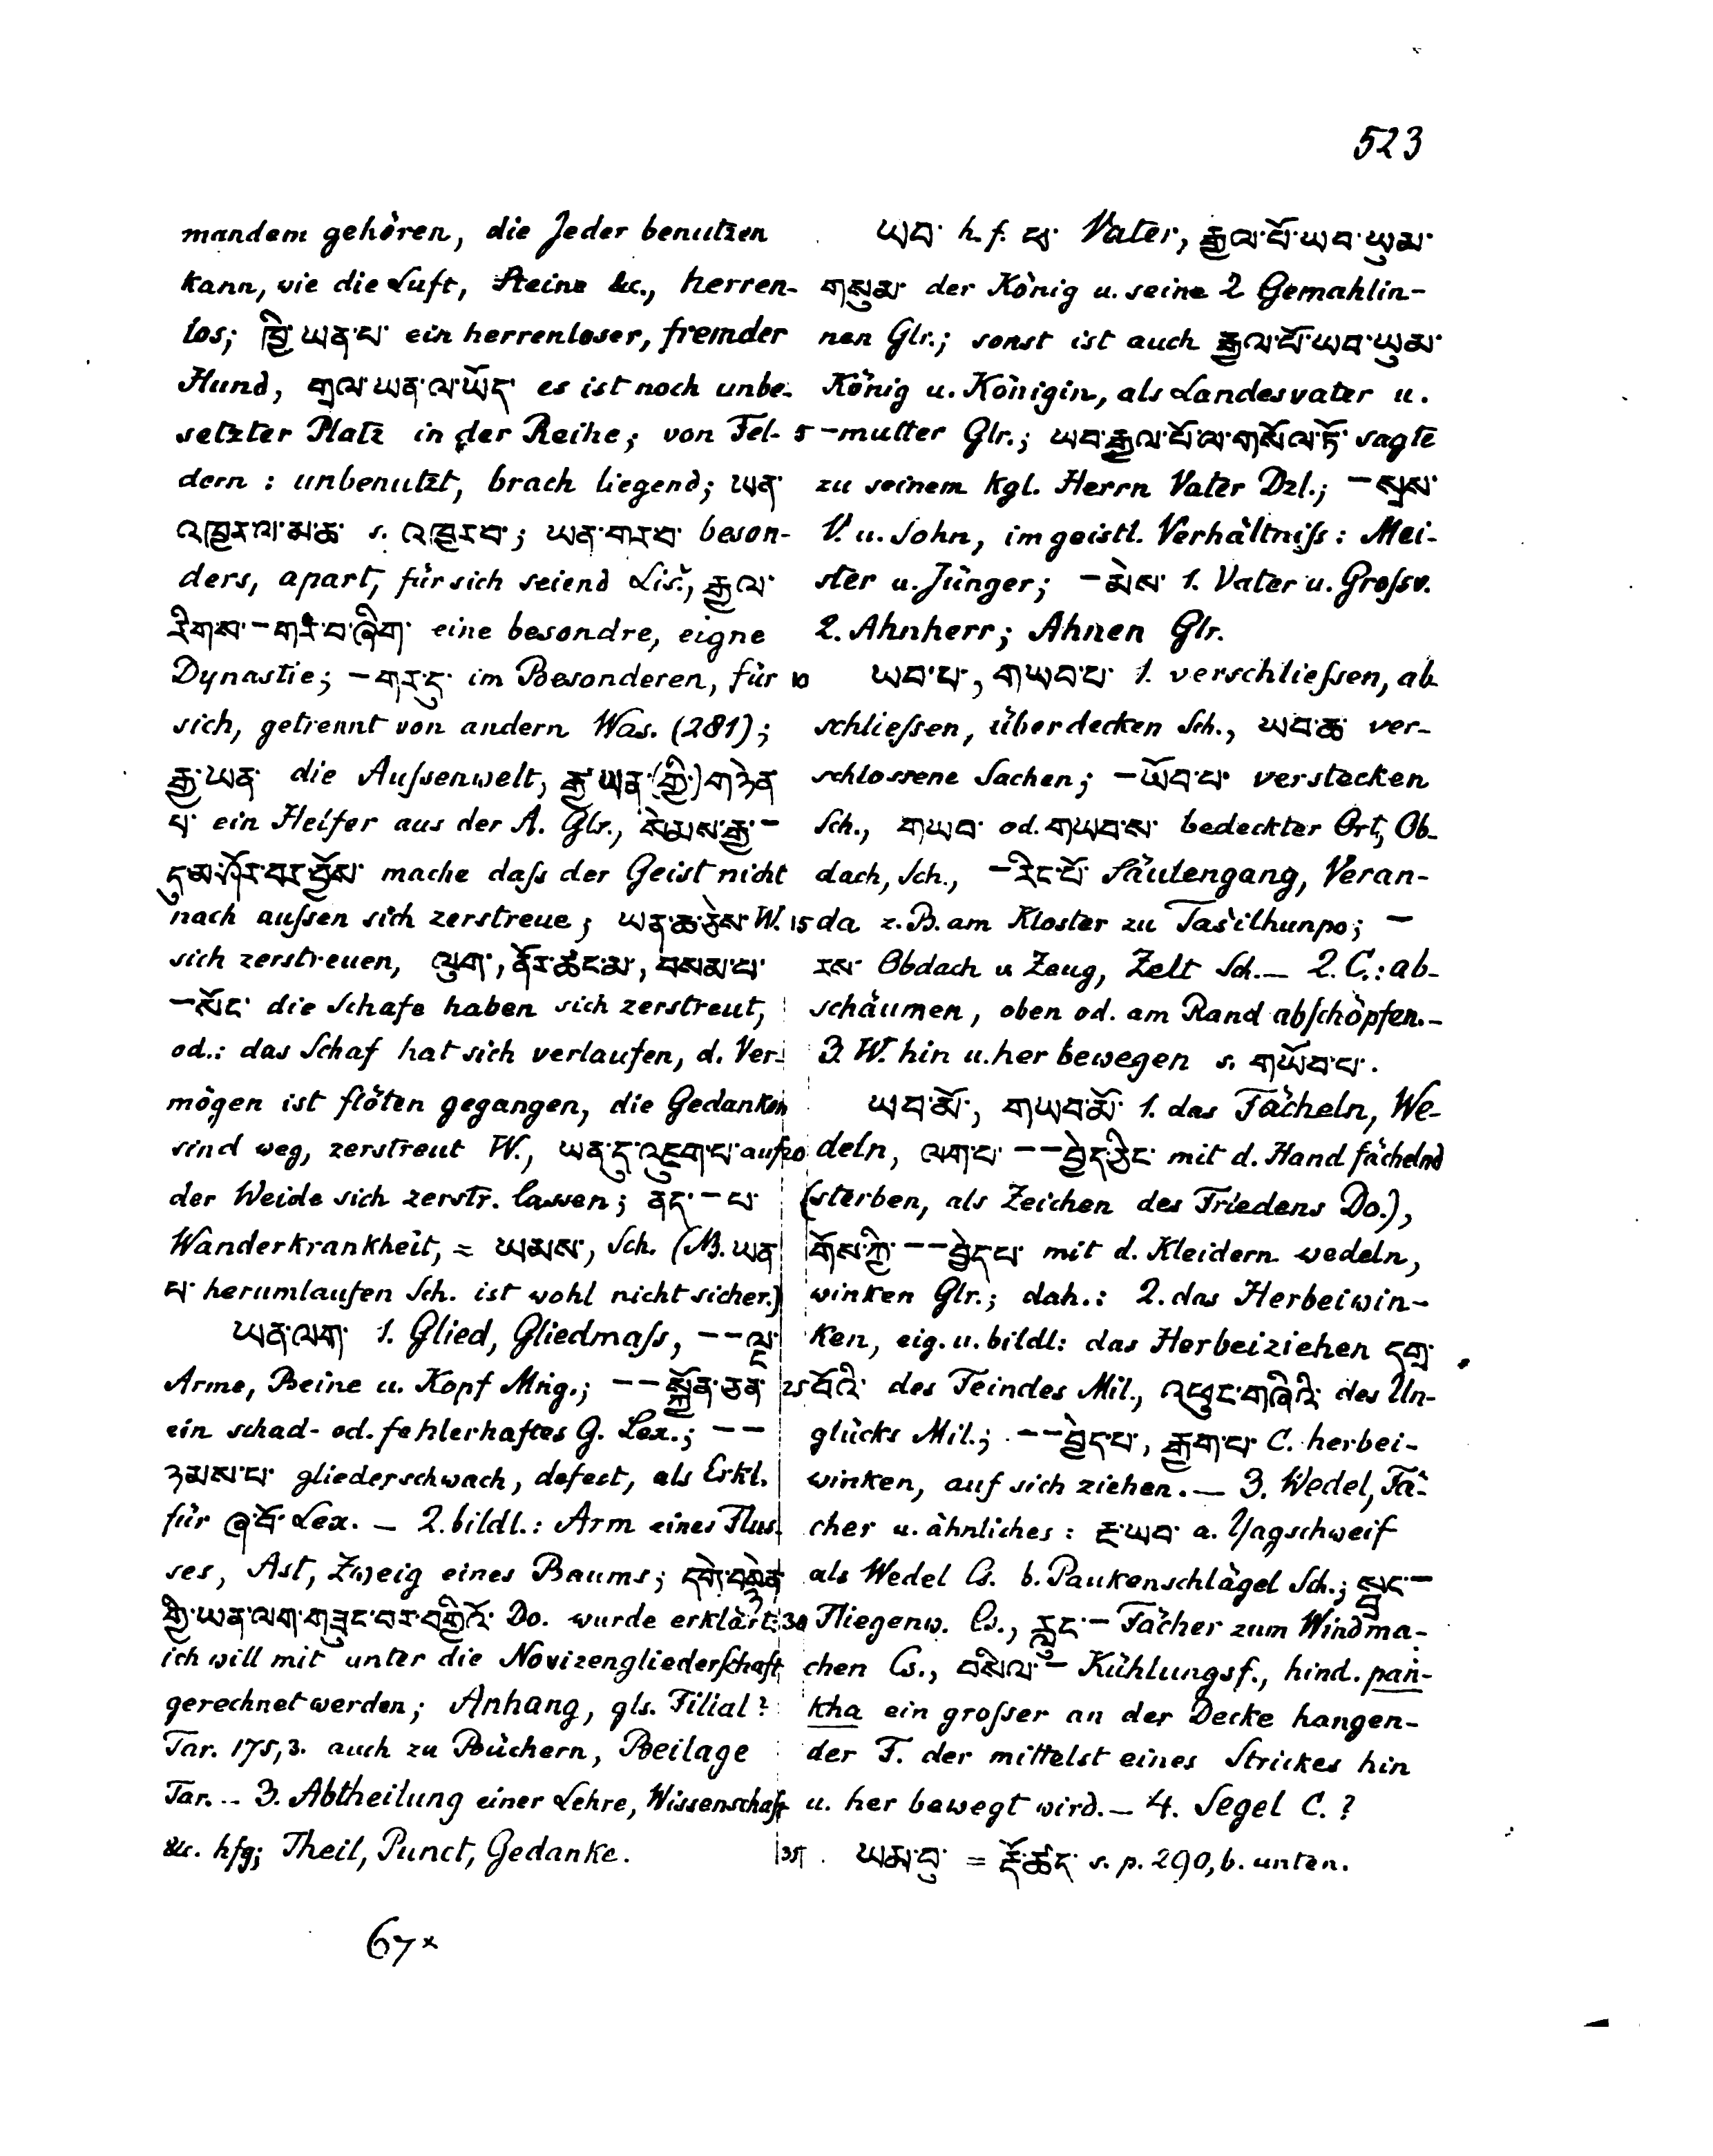 523
mandem gehören, die Jeder benutzen
kann, wie die Luft, Steine &c., herren-
los; ཁྱི་ཡན་པ་ ein herrenloser, fremder
Hund, གྲལ་ཡན་ལ་ཡོད་ es ist noch unbe-
setzter Platz in der Reihe; von Fel-
dern: unbenutzt, brach liegend; ཡན་
འཁྱར་ལ་མ་ཆ་ s. འཁྱར་བ་; ཡན་གར་བ་ beson-
ders, apart, für sich seiend Lis̀., རྒྱལ་
རིགས་–གར་བ་ཞིག་ eine besondre, eigne
Dynastie; –གར་དུ་ im Besonderen, für
sich, getrennt von andern Was. (281);
རྒྱ་ཡན་ die Außenwelt, རྒྱ་ཡན་(གྱི་)གཉེན་
པ་ ein Helfer aus der A. Glr., སེམས་རྒྱ་–
དུ་མ་ཤོར་བར་བྱོས་ mache daß der Geist nicht
nach außen sich zerstreue; ཡན་ཆ་ཅེས་ W.
sich zerstreuen, ལུག་, ནོར་ཚང་མ་, བསམ་པ་
–སོང་ die Schafe haben sich zerstreut,
od.: das Schaf hat sich verlaufen, d. Ver-
mögen ist flöten gegangen, die Gedanken
sind weg, zerstreut W., ཡན་དུ་འཇུག་པ་ auf
der Weide sich zerstr. lassen; ནད་–པ་
Wanderkrankheit, = ཡམས་, Sch. (NB. ཡན་
པ་ herumlaufen Sch. ist wohl nicht sicher.)
ཡན་ལག་ 1. Glied, Gliedmaß, ––ལྔ་
Arme, Beine u. Kopf Mṅg.; ––སྐྱོན་ཅན་
ein schad- od. fehlerhaftes G. Lex.; ––
ཉམས་པ་ gliederschwach, defect, als Erkl.
für ཞ་བོ་ Lex. — 2. bildl.: Arm eines Flus-
ses, Ast, Zweig eines Baums; དགེ་བསྙེན་
གྱི་ཡན་ལག་གཟུང་བར་བགྱིའོ་ Do. wurde erklärt:
ich will mit unter die Novizengliederschaft
gerechnet werden; Anhang, gls. Filial?
Tar. 175,3. auch zu Büchern, Beilage
Tar. – 3. Abtheilung einer Lehre, Wissenschaft
&c. hfg; Theil, Punct, Gedanke.
67*
ཡབ་ h. f. ཕ་ Vater, རྒྱལ་པོ་ཡབ་ཡུམ་
གསུམ་ der König u. seine 2 Gemahlin-
nen Glr.; sonst ist auch རྒྱལ་པོ་ཡབ་ཡུམ་
König u. Königin, als Landesvater u.
5 –mutter Glr.; ཡབ་རྒྱལ་པོ་ལ་གསོལ་ཏོ་ sagte
zu seinem kgl. Herrn Vater Dzl.; –སྲས་
V. u. Sohn, im geistl. Verhältniß: Mei-
ster u. Jünger; –མེས་ 1. Vater u. Großv.
2. Ahnherr; Ahnen Glr.
10 ཡབ་པ་, གཡབ་པ་ 1. verschließen, ab
schließen, überdecken Sch., ཡབ་ཆ་ ver-
schlossene Sachen; –ཡོབ་པ་ verstecken
Sch., གཡབ་ od. གཡབ་ས་ bedeckter Ort, Ob-
dach, Sch., –རིང་པོ་ Säulengang, Veran-
15 da z.B. am Kloster zu Tas̀ilhunpo; –
རས་ Obdach u Zeug, Zelt Sch. — 2. C.: ab-
schäumen, oben od. am Rand abschöpfen. –
3. W. hin u. her bewegen s. གཡོབ་པ་.
ཡབ་མོ་, གཡབ་མོ་ 1. das Fächeln, We-
20 deln, ལག་པ་ ––བྱེད་ཅིང་ mit d. Hand fächelnd
(sterben, als Zeichen des Friedens Do.),
གོས་ཀྱི་––བྱེད་པ་ mit d. Kleidern wedeln,
winken Glr.; dah.: 2. das Herbeiwin-
ken, eig. u. bildl: das Herbeiziehen དགྲ་
25 བོའི་ des Feindes Mil., འཕུང་གཞིའི་ des Un-
glücks Mil.; ––བྱེད་པ་, རྒྱག་པ་ C. herbei-
winken, auf sich ziehen. — 3. Wedel, Fä-
cher u. ähnliches: རྔ་ཡབ་ a. Yagschweif
als Wedel Cs. b. Paukenschlägel Sch.; སྦྲང་–
30 Fliegenw. Cs., རླུང་– Fächer zum Windma-
chen Cs., བསིལ་– Kühlungsf., hind. paṅ-
kha ein großer an der Decke hangen-
der F. der mittelst eines Strickes hin
u. her bewegt wird. — 4. Segel C.?
35 ཡམ་བུ་ = རྡོ་ཚད་ s. p. 290, b. unten.